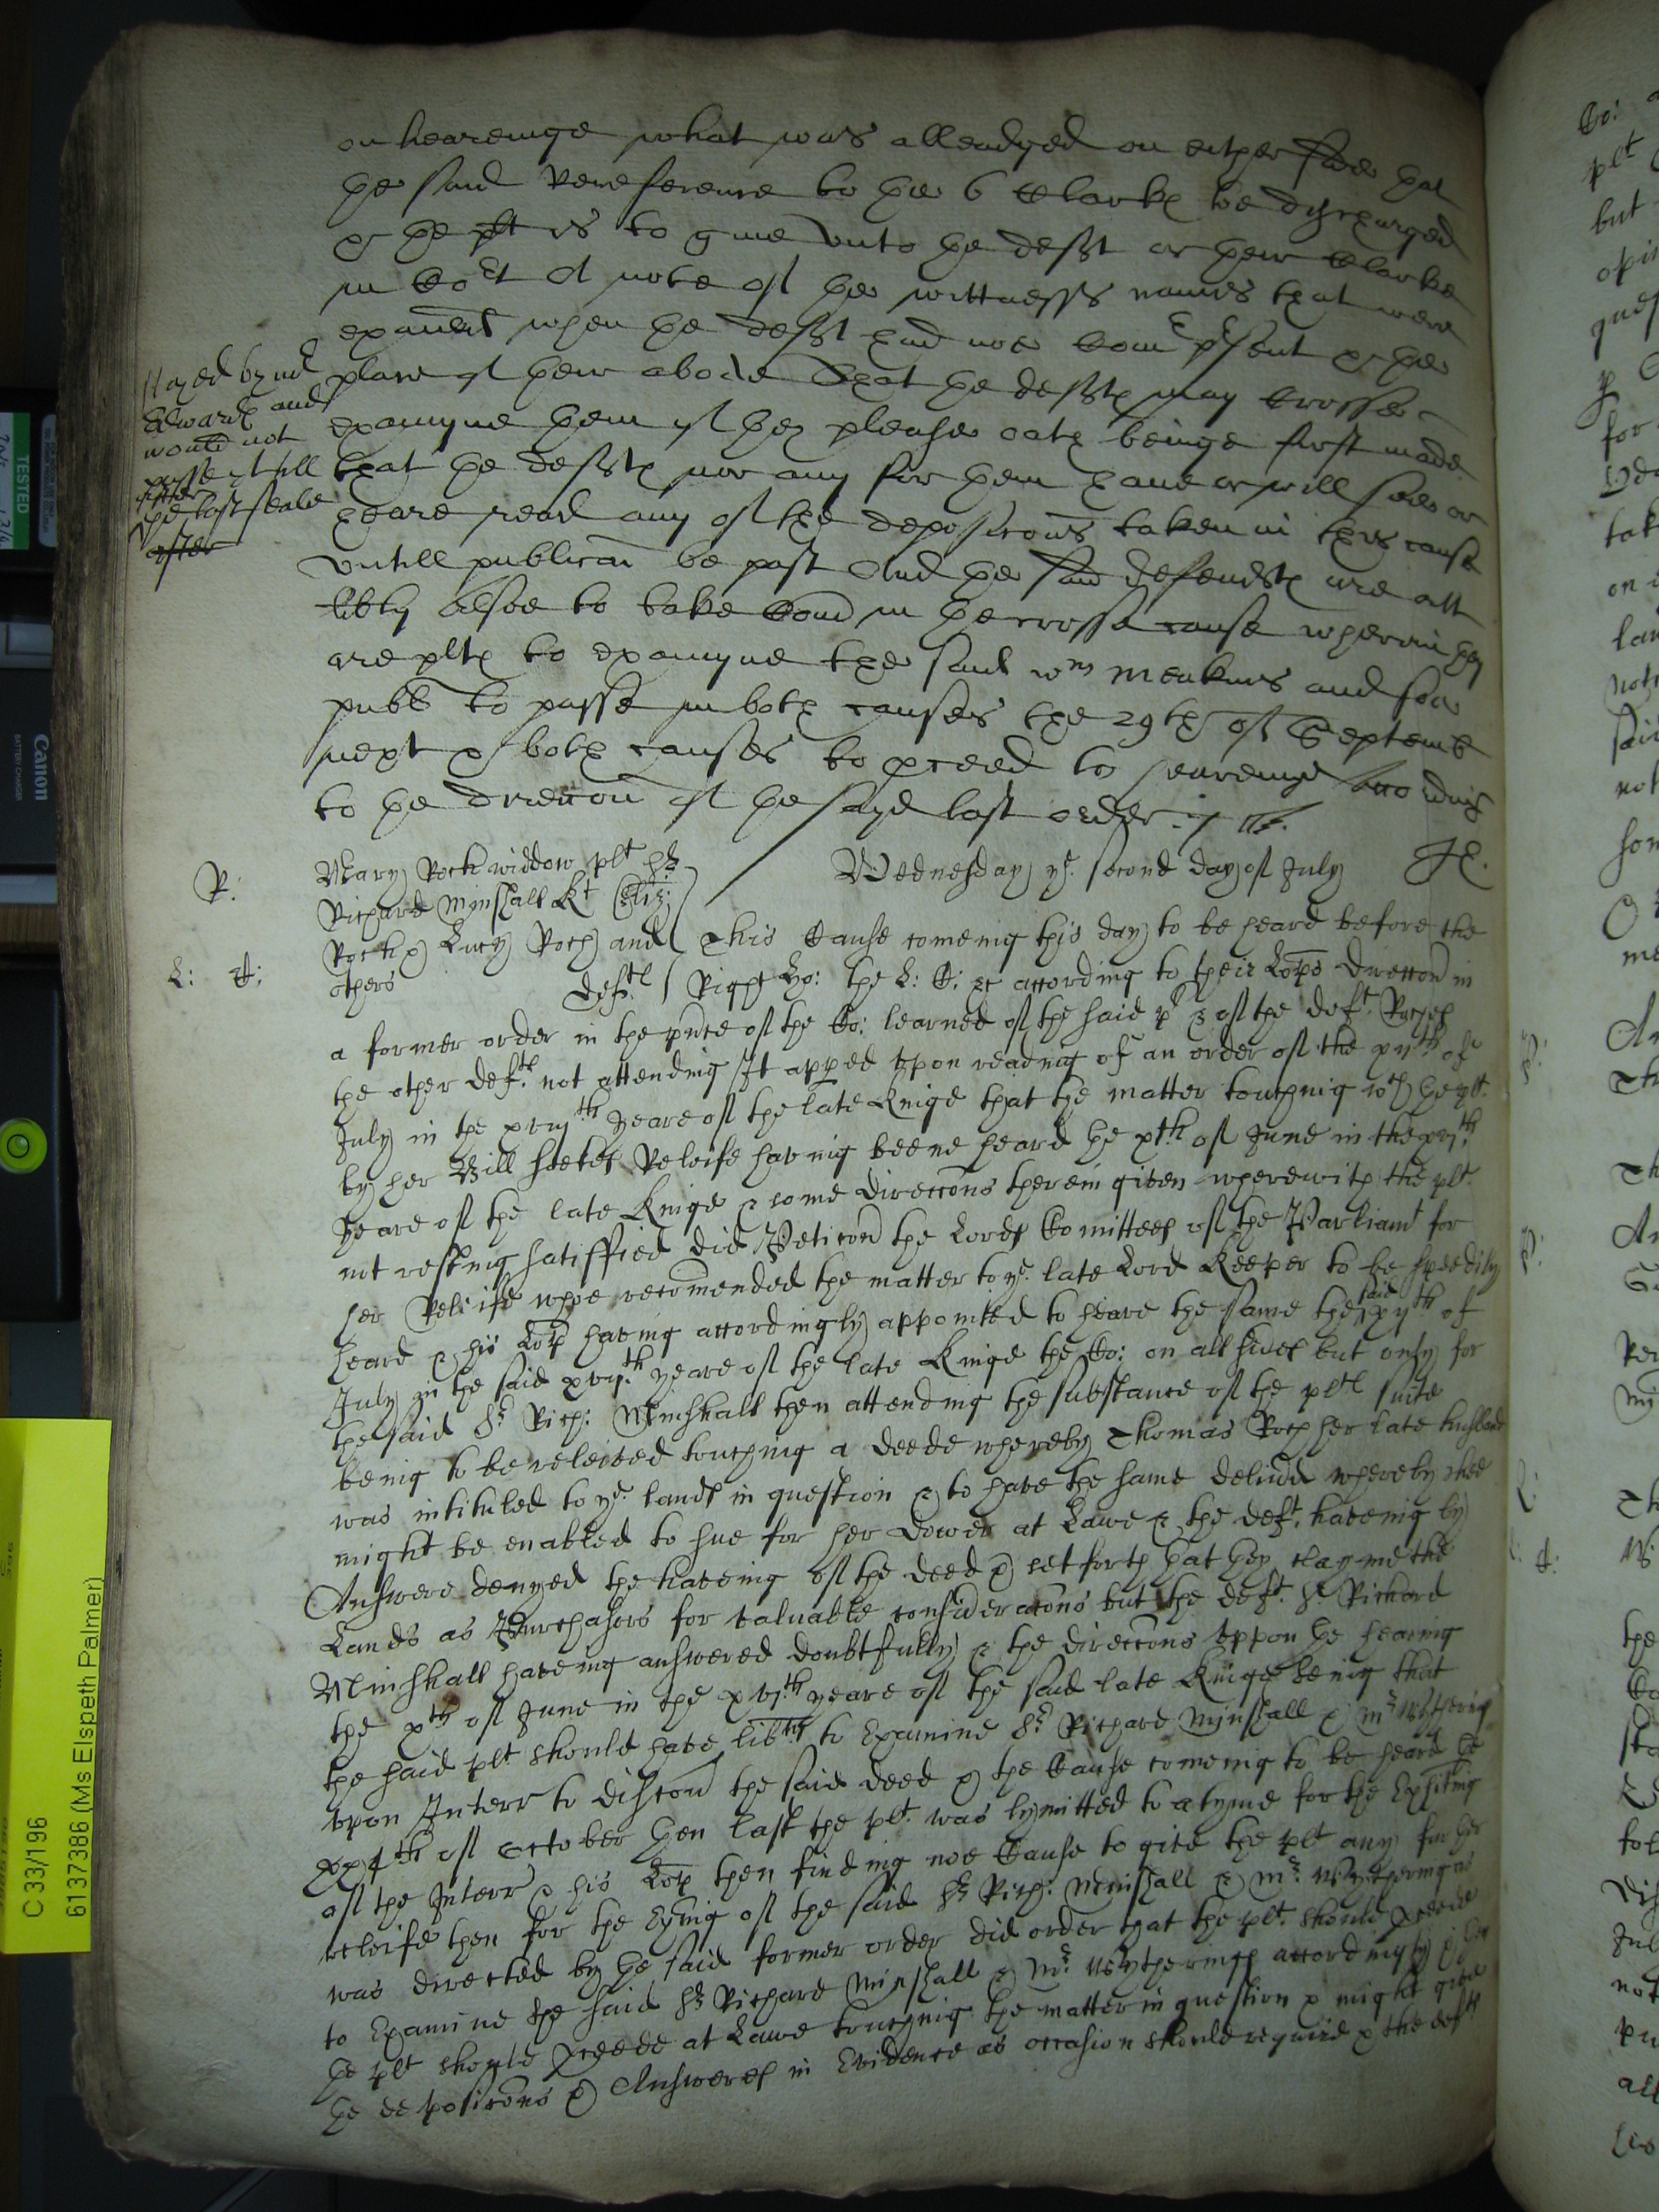 on heareinge what was alleadged on either side that
the said Rereference to the 6 Clarkes be discharged
& the plt is to give unto the defts or their Clarke
in Cort A note of the wittnesses names that were
examined when the deft had noe Comr present & the
place of their abode That the defts may Crosse
examyne them if they please oath beinge first made
that the defts nor any for them have or will see or
heare read any of the deposicons taken in this cause
untill publicacon be past And the said defendts are att
libty alsoe to take Com in the crosse cause wherein they
are plts to examyne the said Wm Meakins and soe
publ to passe in both causes the 29th of Septemb
next & both causes to pceed to heareinge according
to the direccon of the sayd last order
Stayed by mr
Edwards and
would not
passe it till
after
the last seale
after
R:
Mary Roch widdow plt Sr
Richard Mynshall Kt Eliz:
Roch & Lucy Roch and
others Defts
Wednesday ye second day of July
L: C:
This Cause comeing this day to be heard before the
Right Ho: the L: C: &c according to their Lops direccon in
a former order in the pnce of the Co: learned of the said pt & of the deft
the other defts not attending It appeed upon reading of an order of the xvth of
July in the xviijth yeare of the late Kinge that the matter touching wch the plt
by her Bill seekes Releife having beene heard the xth of June in the xvjth
yeare of the late Kinge & some direccons therein given wherewith the plt
not resting satisffied did Peticon the Lords Comittees of the Parliamt for
her Releife whoe recomended the matter to ye late Lord Keeper to be speedily
heard & his Lop having accordingly appointed to heare the same the said xvth of
July in the said xviijth yeare of the late Kinge the Co: on all sides but only for
the said Sr Rich: Minshall then attending the substance of the plts suite
being to be releived touching a deede whereby Thomas Roch her late husband
was intituled to ye lands in question & to have the same deliud whereby shee
might be enabled to sue for her Dower at Lawe & the deft haveing by
Answere denyed the haveing of the deed & set forth that they clayme the
Lands as Purchasers for valuable consideracons but the deft Sr Richard
Minshall haveing answered doubtfully & the direccons uppon the hearing
the xth of June in the xvjth yeare of the said late Kinge being that
the said plt should have libty to Examine Sr Richard Mynshall & Mr Wytherings
upon Interr to discou the said deed & the Cause comeing to be heard the
of October then last the plt was lymitted to a tyme for the Exhiting
of the Interr & his Lop then finding noe Cause to give the plt any further
releife then for the Exing of the said Sr Rich: Minshall & Mr Wytherings
was directed by the said former order did order that the plt should pceede
to Examine the said Sr Richard Minshall & Mr Wytherings accordingly & then
the plt should pceede at Lawe touching the matter in question & might give
the deposicons & Answeres in Evidence as occasion should require & the defts
TESTED
Canon
BATTERY CHARGER
C 33/196
6137386 (Ms Elspeth Palmer)